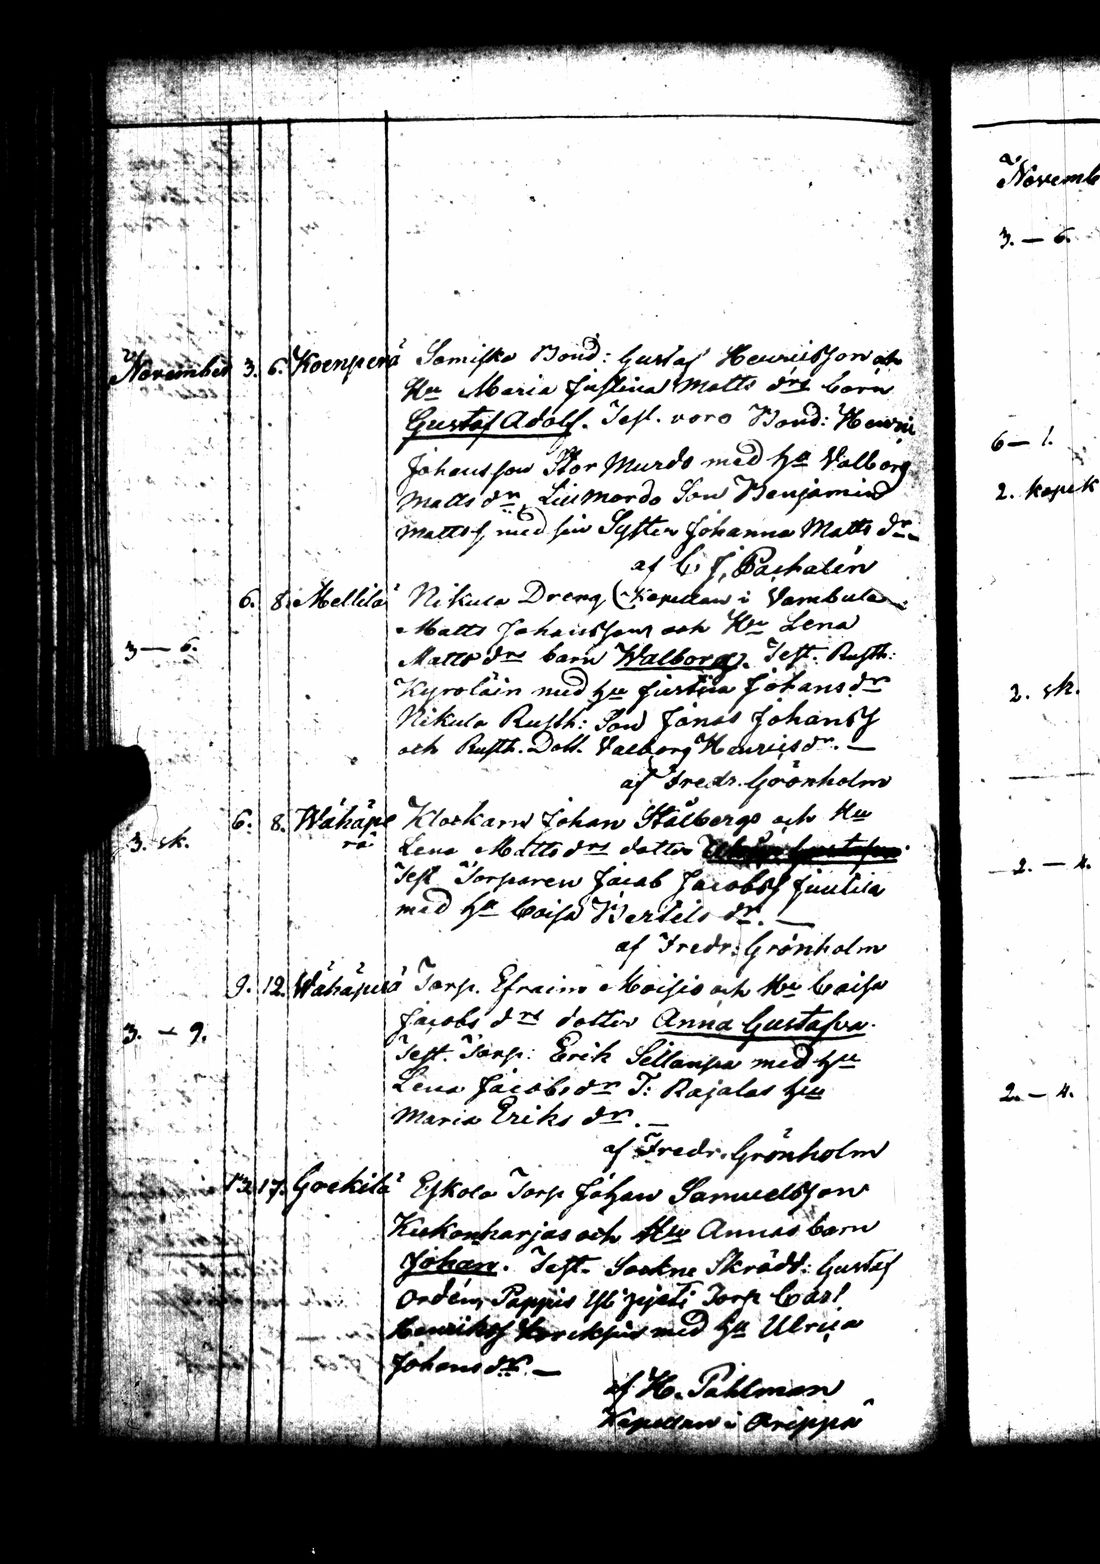 November 3. 6. Koenperä Bond: Gustaf Henricsson och
Hu Maria Justina Matts drs barn
Gustaf Adolf. Test. voro Bond: Henric
Johansson Stor Murdo med hu Valborg
Matts dr, Lill Mordo Son Benjamin
Matts med sin Syster Johanna Matts dr
af C. J. Paihalén
6. 8. Mellilä Nikula Dreng (Kapellan i Vambula)
Matts Johanssons och Hu Lena
3 — 6.
Matts drs barn Walborg. Test. Rusth:
Kyroläin med hu Justina Johans dr
Nikula Rusth: Son Jonas Johanss
och Rusth. Dott. Valborg Henrics dr. —
af Fredr. Grönholm
6. 8. Wåhäpe Klockarn Johan Stålbergs och Hu
3. sk. rä Lena Matts drs dotter
Test Torparen Jacob Jacobss Juutila
med hu Caisa Bertils dr. —
af Fredr: Grönholm
9. 12. Wåhäperä Torp. Efraim Moisis och Hu Caisa
Jacobs drs dotter Anna Gustafva.
3. — 9.
Test. Torp: Erik Sillanpä med hu
Lena Jacobs dr T: Rajalas hu
Maria Eriks dr. —
af Fredr. Grönholm
13. 17. Goekilä Eskola Torp Johan Samuelsson
Kukonharjas och Hu Annas barn
Johan. Test. Sockne Skrädd: Gustaf
Ordén, Pappis Torp Carl
Henrikss med hu Ulrica
Johans dr. —
af H. Pahlman
Kapellan i Orippä
Novemb
3. — 6.
6 — 1.
2. kopek
2. sk.
2. — 4.
2. — 4.